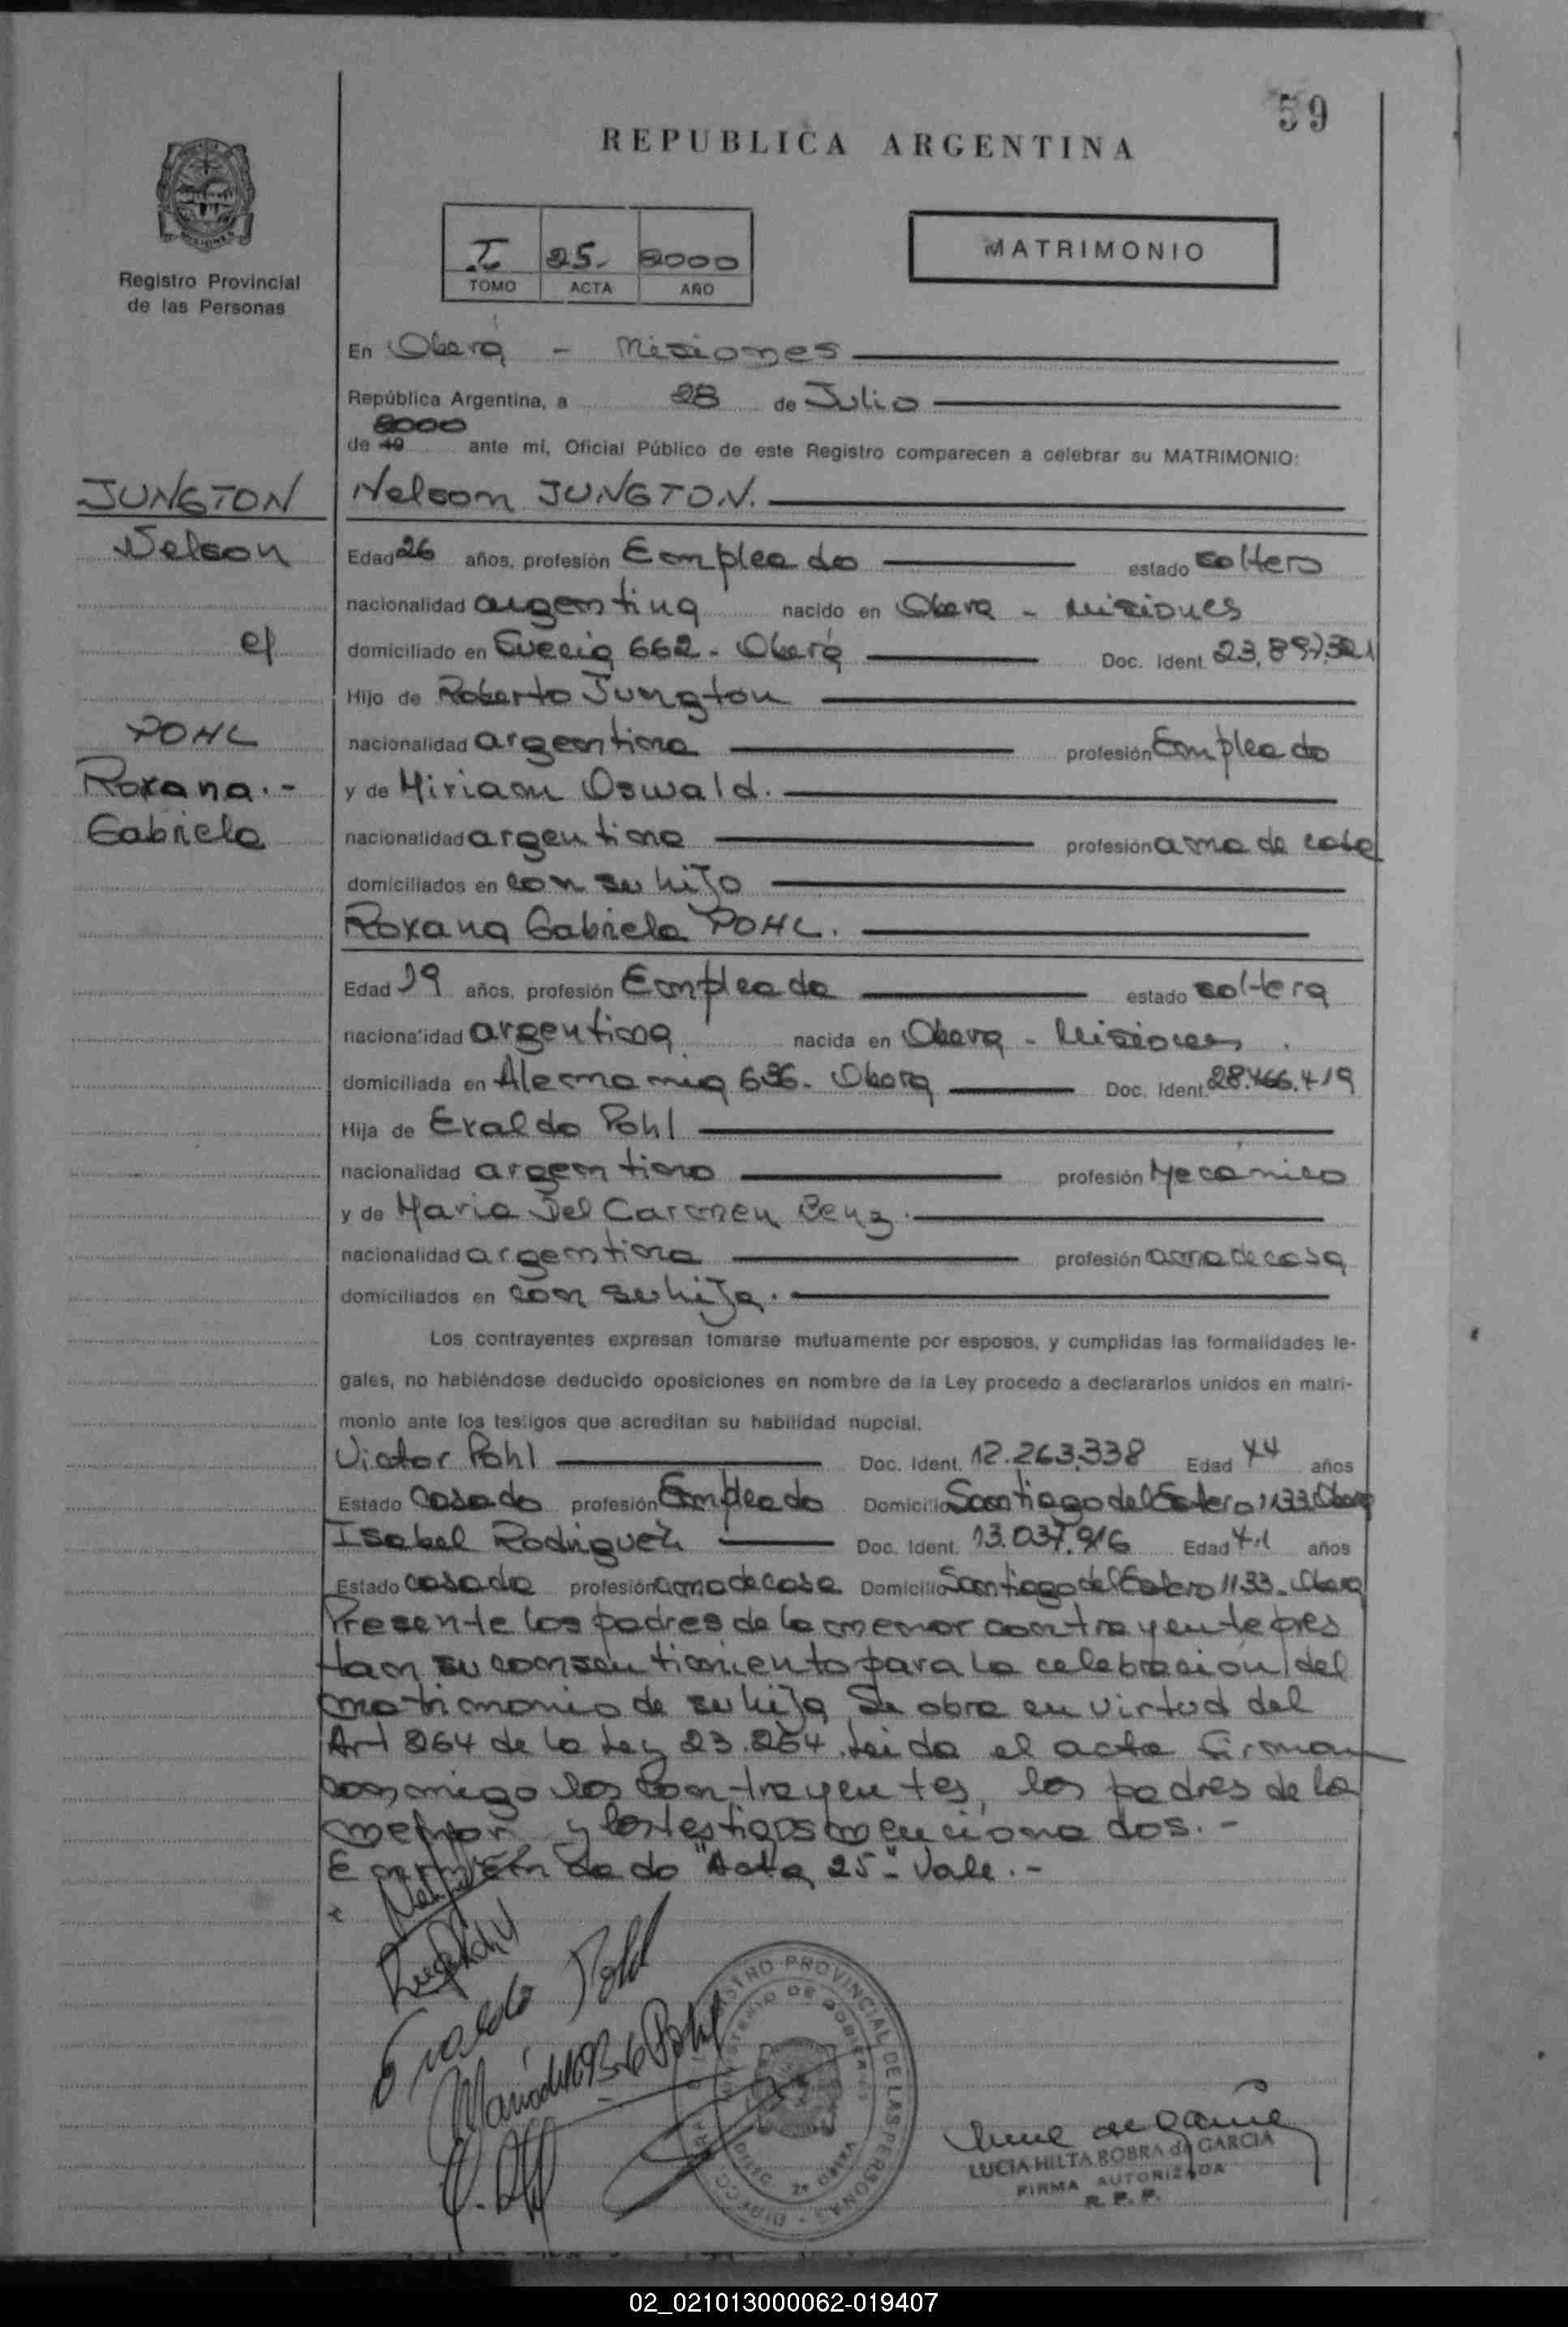 59
REPUBLICA ARGENTINA
MISIONES
Registro Provincial
de las Personas
I 25. 2000
TOMO ACTA AÑO
MATRIMONIO
En Oberá - Misiones
República Argentina, a 28 de Julio
2000
de 19 ante mí, Oficial Público de este Registro comparecen a celebrar su MATRIMONIO:
JUNGTON
Nelson
c/
POHL
Roxana.-
Gabriela
Nelson JUNGTON.
Edad 26 años, profesión Empleado estado soltero
nacionalidad argentina nacido en Obera - Misiones
domiciliado en Suecia 662 - Oberá Doc. Ident. 23.897.321
Hijo de Roberto Jungton
nacionalidad argentina profesión Empleado
y de Miriam Oswald.
nacionalidad argentina profesión ama de casa
domiciliados en con su hijo
Roxana Gabriela POHL.
Edad 19 años, profesión Empleada estado soltera
nacionalidad argentina nacida en Obera - Misiones
domiciliada en Alemania 636 - Obera Doc. Ident. 28.466.419
Hija de Evaldo Pohl
nacionalidad argentino profesión Mecánico
y de Maria Del Carmen Benz.
nacionalidad argentina profesión ama de casa
domiciliados en con su hija.
Los contrayentes expresan tomarse mutuamente por esposos, y cumplidas las formalidades le-
gales, no habiéndose deducido oposiciones en nombre de la Ley procedo a declararlos unidos en matri-
monio ante los testigos que acreditan su habilidad nupcial.
Victor Pohl Doc. Ident. 12.263.338 Edad 44 años
Estado Casado profesión Empleado Domicilio Santiago del Estero 1133 Obera
Isabel Rodriguez Doc. Ident. 13.037.916 Edad 41 años
Estado casada profesión ama de casa Domicilio Santiago del Estero 1133 - Obera
Presente los padres de la menor contrayente pres
tan su consentimiento para la celebración del
matrimonio de su hija Se obra en virtud del
Art 264 de la Ley 23.264 Leida el acta firman
conmigo los contrayentes, los padres de la
menor y los testigos mencionados.-
Enmendado "Acta 25" Vale.-
Evaldo Pohl
REGISTRO PROVINCIAL DE LAS PERSONAS
MINISTERIO DE GOBIERNO
LUCIA HILTA ROBRA de GARCIA
FIRMA AUTORIZADA
R. P. P.
02_021013000062-019407